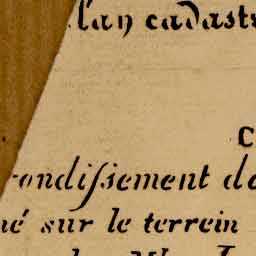 lan cadast
C
ondiſsement d
né sur le terrein